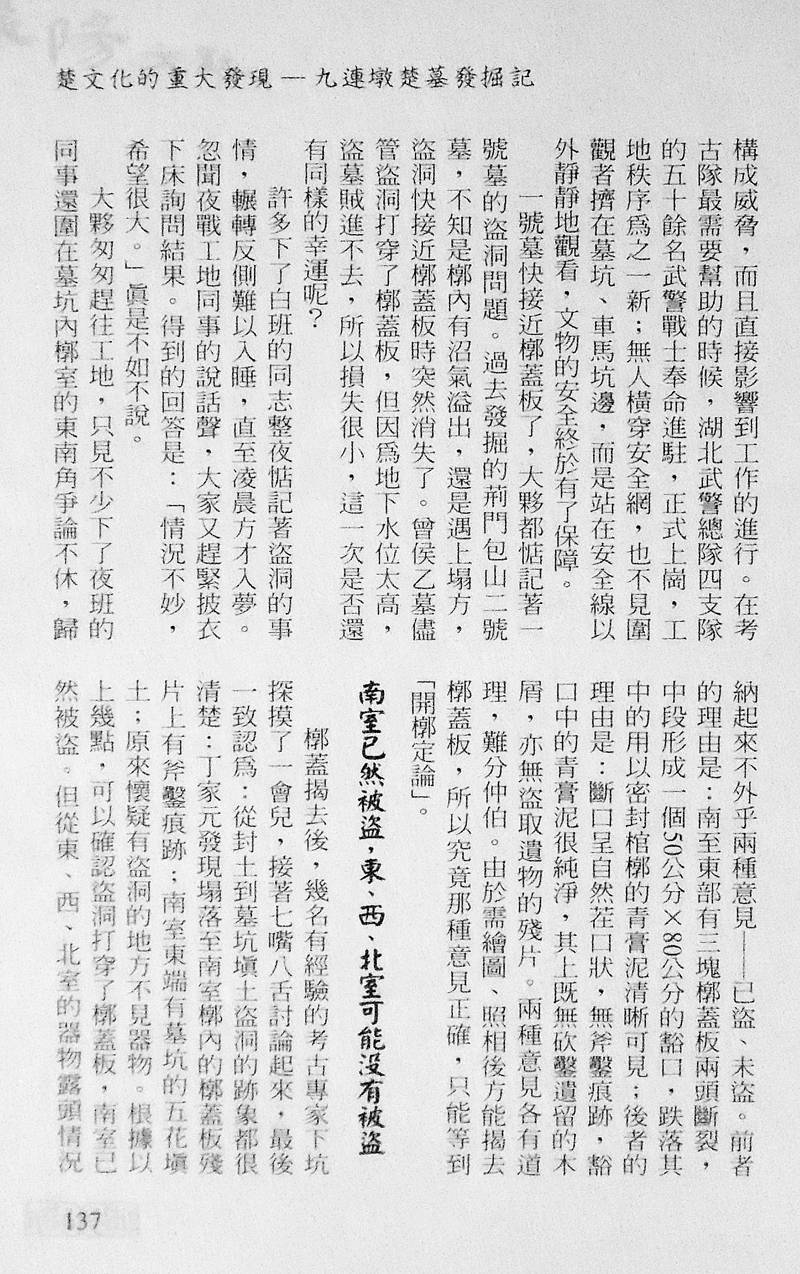 楚文化的重大發現—九連墩楚墓發掘記
構成威脅，而且直接影響到工作的進行。在考
古隊最需要幫助的時候，湖北武警總隊四支隊
的五十餘名武警戰士奉命進駐，正式上崗，工
地秩序爲之一新；無人橫穿安全網，也不見圍
觀者擠在墓坑、車馬坑邊，而是站在安全線以
外靜靜地觀看，文物的安全終於有了保障。
一號墓快接近槨蓋板了，大夥都惦記著一
號墓的盜洞問題。過去發掘的荊門包山二號
墓，不知是槨內有沼氣溢出，還是遇上塌方，
盜洞快接近槨蓋板時突然消失了。曾侯乙墓儘
管盜洞打穿了槨蓋板，但因爲地下水位太高，
盜墓賊進不去，所以損失很小，這一次是否還
有同樣的幸運呢？
許多下了白班的同志整夜惦記著盜洞的事
情，輾轉反側難以入睡，直至凌晨方才入夢。
忽聞夜戰工地同事的說話聲，大家又趕緊披衣
下床詢問結果。得到的回答是：「情況不妙，
希望很大。」眞是不如不說。
大夥匆匆趕往工地，只見不少下了夜班的
同事還圍在墓坑內槨室的東南角爭論不休，歸
納起來不外乎兩種意見——已盜、未盜。前者
的理由是：南至東部有三塊槨蓋板兩頭斷裂，
中段形成一個50公分×80公分的豁口，跌落其
中的用以密封棺槨的青膏泥清晰可見；後者的
理由是：斷口呈自然茬口狀，無斧鑿痕跡，豁
口中的青膏泥很純淨，其上既無砍鑿遺留的木
屑，亦無盜取遺物的殘片。兩種意見各有道
理，難分仲伯。由於需繪圖、照相後方能揭去
槨蓋板，所以究竟那種意見正確，只能等到
「開槨定論」。
南室已然被盜，東、西、北室可能没有被盜
槨蓋揭去後，幾名有經驗的考古專家下坑
探摸了一會兒，接著七嘴八舌討論起來，最後
一致認爲：從封土到墓坑塡土盜洞的跡象都很
清楚：丁家元發現塌落至南室槨內的槨蓋板殘
片上有斧鑿痕跡；南室東端有墓坑的五花塡
土；原來懷疑有盜洞的地方不見器物。根據以
上幾點，可以確認盜洞打穿了槨蓋板，南室已
然被盜。但從東、西、北室的器物露頭情況
137